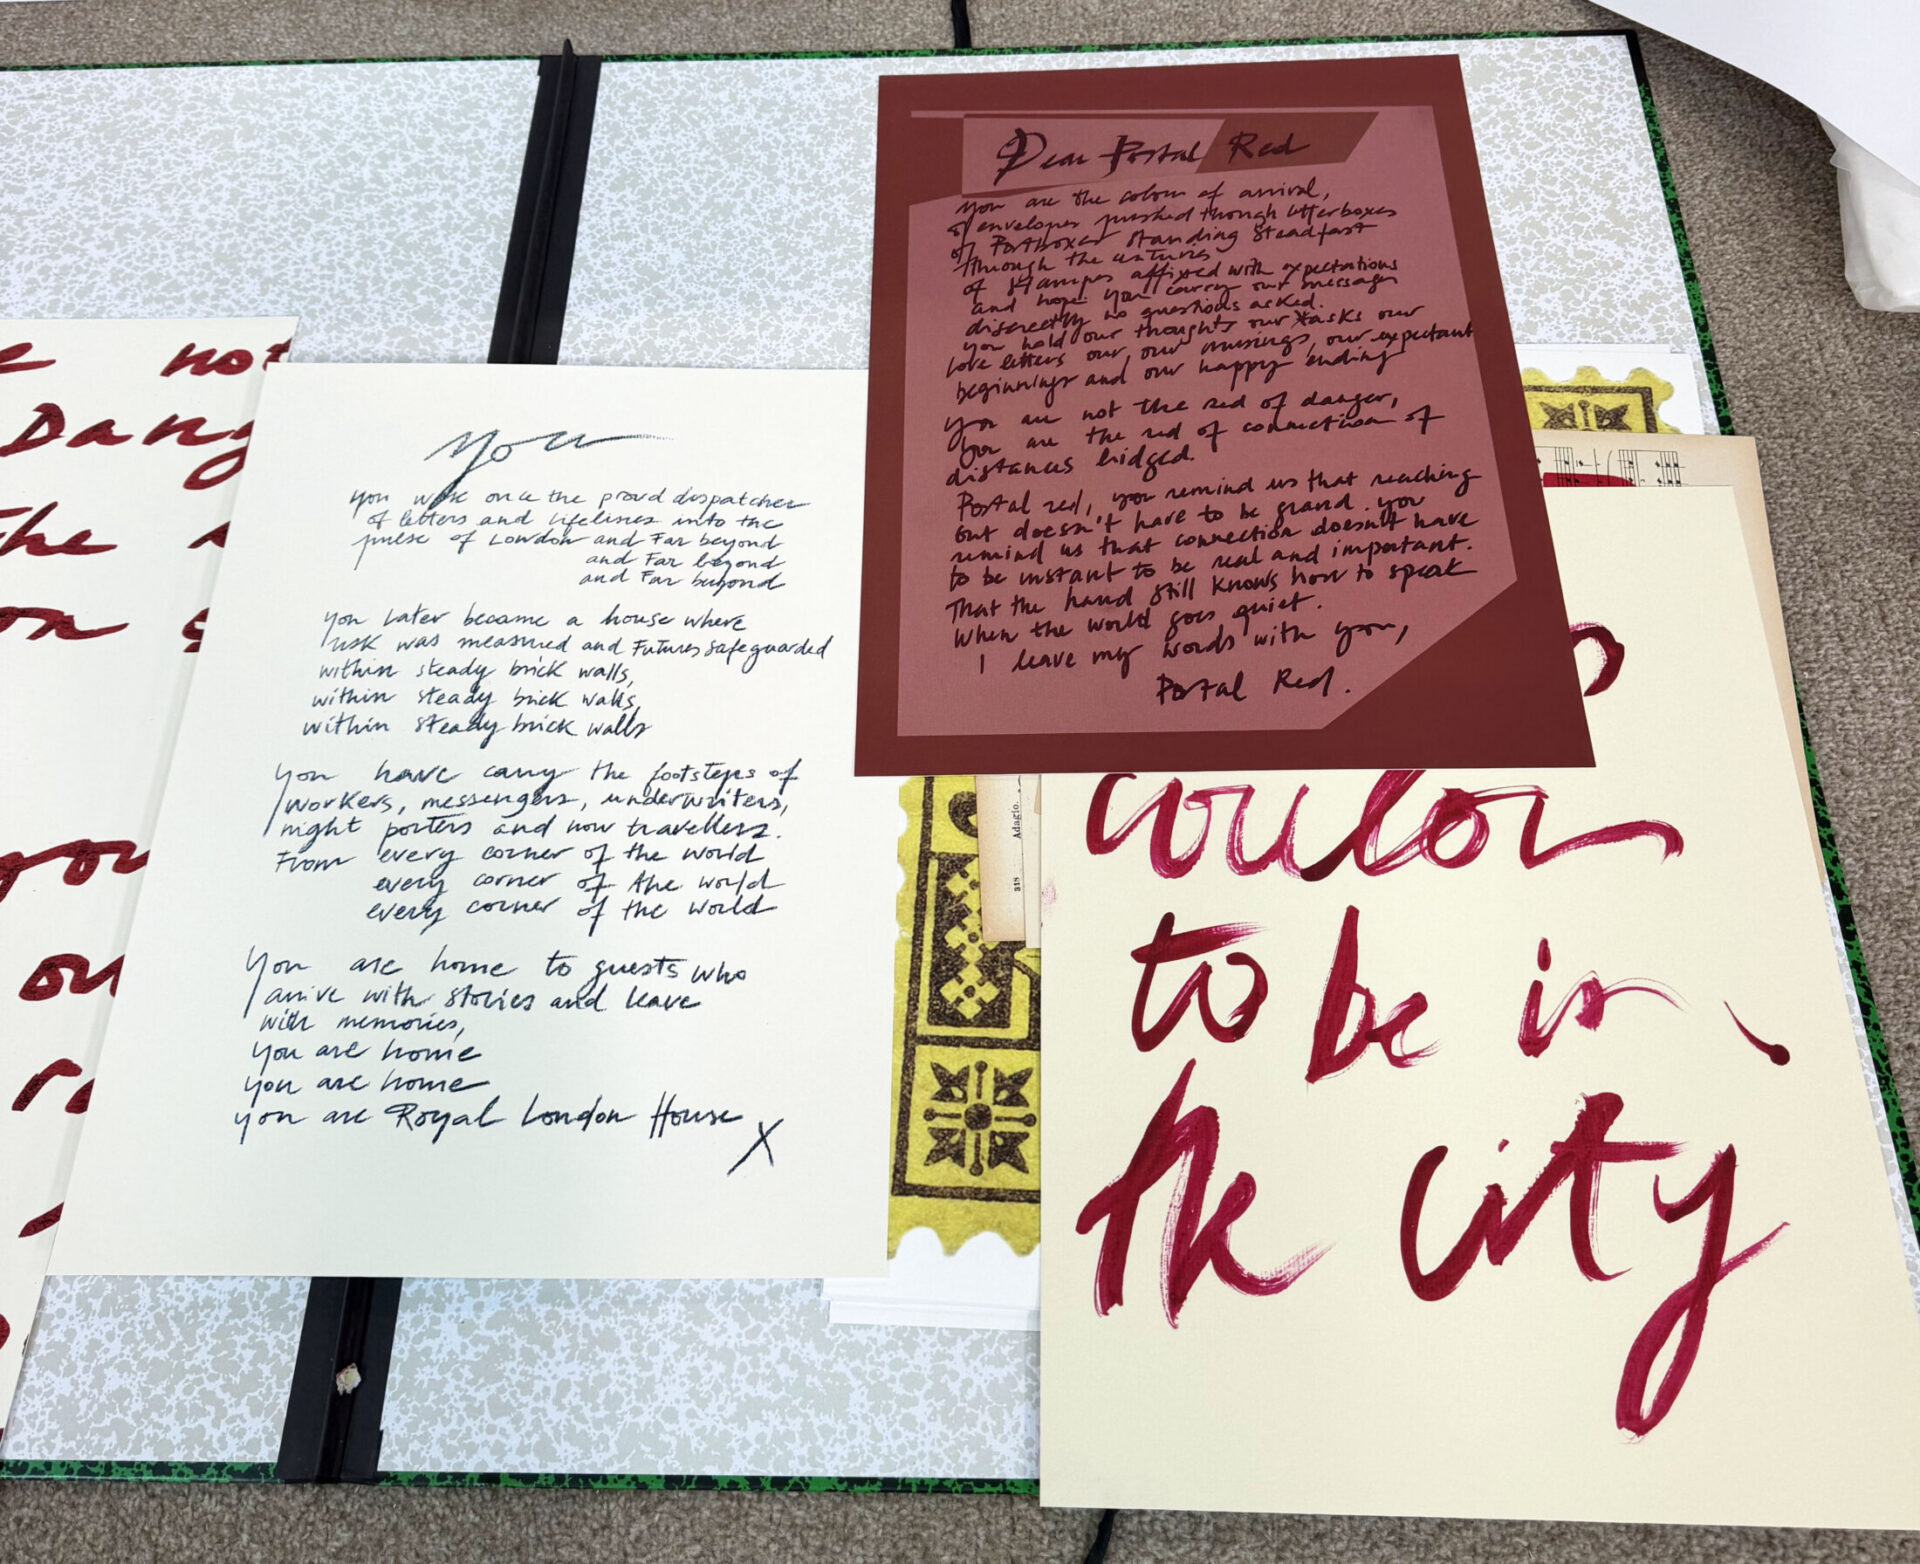 not
Dang
the
on s
you
ou
you
you were once the proud dispatcher
of letters and lifelines into the
pulse of London and Far beyond
and Far beyond
and Far beyond
you later became a house where
risk was measured and Futures safeguarded
within steady brick walls,
within steady brick walls,
within steady brick walls
you have carry the footsteps of
workers, messengers, underwriters,
night porters and now travellers.
From every corner of the world
every corner of the world
every corner of the world
you are home to guests who
arrive with stories and leave
with memories,
you are home
you are home
you are Royal London House
X
Dear Postal Red
you are the colour of arrival,
of envelopes pushed though letterboxes
of Postboxes standing steadfast
through the centuries
of stamps affixed with expectations
and hope you carry our messages
discreetly no questions asked.
you hold our thoughts our tasks our
love letters our, our musings, our expectant
beginnings and our happy ending
you are not the red of danger,
you are the red of connection of
distances bridged.
Postal red, you remind us that reaching
out doesn't have to be grand. you
remind us that connection doesn't have
to be instant to be real and important.
That the hand still knows how to speak
when the world goes quiet.
I leave my words with you,
Postal Red.
318 Adagio.
colour
to be in
the city